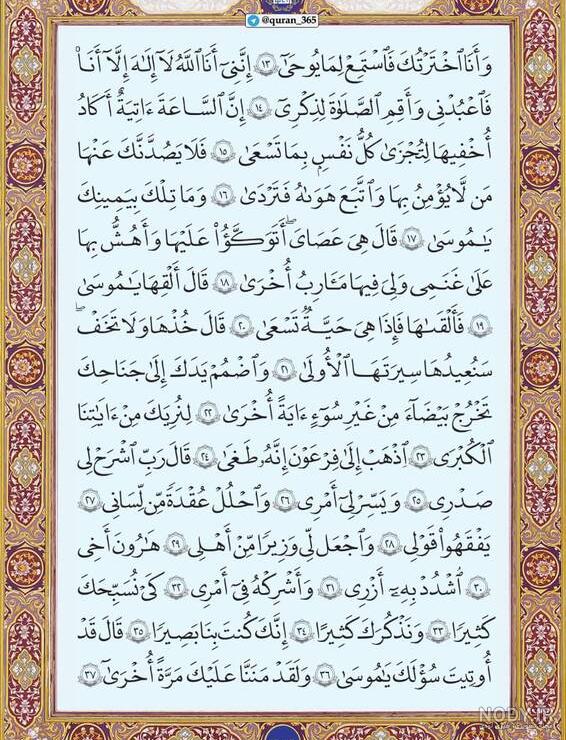 @quran_365
وَأَنَا ٱخۡتَرۡتُكَ فَٱسۡتَمِعۡ لِمَا يُوحَىٰٓ ١٣ إِنَّنِيٓ أَنَا ٱللَّهُ لَآ إِلَٰهَ إِلَّآ أَنَا۠
فَٱعۡبُدۡنِي وَأَقِمِ ٱلصَّلَوٰةَ لِذِكۡرِيٓ ١٤ إِنَّ ٱلسَّاعَةَ ءَاتِيَةٌ أَكَادُ
أُخۡفِيهَا لِتُجۡزَىٰ كُلُّ نَفۡسِۭ بِمَا تَسۡعَىٰ ١٥ فَلَا يَصُدَّنَّكَ عَنۡهَا
مَن لَّا يُؤۡمِنُ بِهَا وَٱتَّبَعَ هَوَىٰهُ فَتَرۡدَىٰ ١٦ وَمَا تِلۡكَ بِيَمِينِكَ
يَٰمُوسَىٰ ١٧ قَالَ هِيَ عَصَايَ أَتَوَكَّؤُاْ عَلَيۡهَا وَأَهُشُّ بِهَا
عَلَىٰ غَنَمِي وَلِيَ فِيهَا مَـَٔارِبُ أُخۡرَىٰ ١٨ قَالَ أَلۡقِهَا يَٰمُوسَىٰ
١٩ فَأَلۡقَىٰهَا فَإِذَا هِيَ حَيَّةٞ تَسۡعَىٰ ٢٠ قَالَ خُذۡهَا وَلَا تَخَفۡۖ
سَنُعِيدُهَا سِيرَتَهَا ٱلۡأُولَىٰ ٢١ وَٱضۡمُمۡ يَدَكَ إِلَىٰ جَنَاحِكَ
تَخۡرُجۡ بَيۡضَآءَ مِنۡ غَيۡرِ سُوٓءٍ ءَايَةً أُخۡرَىٰ ٢٢ لِنُرِيَكَ مِنۡ ءَايَٰتِنَا
ٱلۡكُبۡرَى ٢٣ ٱذۡهَبۡ إِلَىٰ فِرۡعَوۡنَ إِنَّهُۥ طَغَىٰ ٢٤ قَالَ رَبِّ ٱشۡرَحۡ لِي
صَدۡرِي ٢٥ وَيَسِّرۡ لِيٓ أَمۡرِي ٢٦ وَٱحۡلُلۡ عُقۡدَةٗ مِّن لِّسَانِي ٢٧
يَفۡقَهُواْ قَوۡلِي ٢٨ وَٱجۡعَل لِّي وَزِيرٗا مِّنۡ أَهۡلِي ٢٩ هَٰرُونَ أَخِي
٣٠ ٱشۡدُدۡ بِهِۦٓ أَزۡرِي ٣١ وَأَشۡرِكۡهُ فِيٓ أَمۡرِي ٣٢ كَيۡ نُسَبِّحَكَ
كَثِيرٗا ٣٣ وَنَذۡكُرَكَ كَثِيرًا ٣٤ إِنَّكَ كُنتَ بِنَا بَصِيرٗا ٣٥ قَالَ قَدۡ
أُوتِيتَ سُؤۡلَكَ يَٰمُوسَىٰ ٣٦ وَلَقَدۡ مَنَنَّا عَلَيۡكَ مَرَّةً أُخۡرَىٰٓ ٣٧
NODY.IR